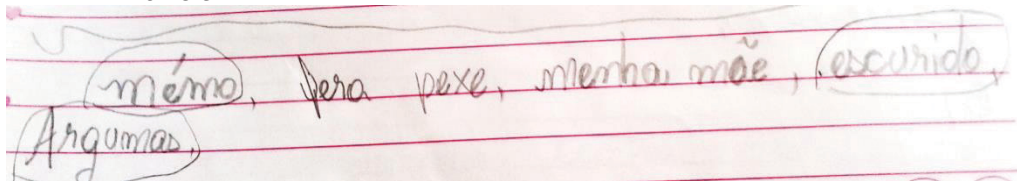 mémo, pera pexe, menha mãe, escurido,
Argumas,